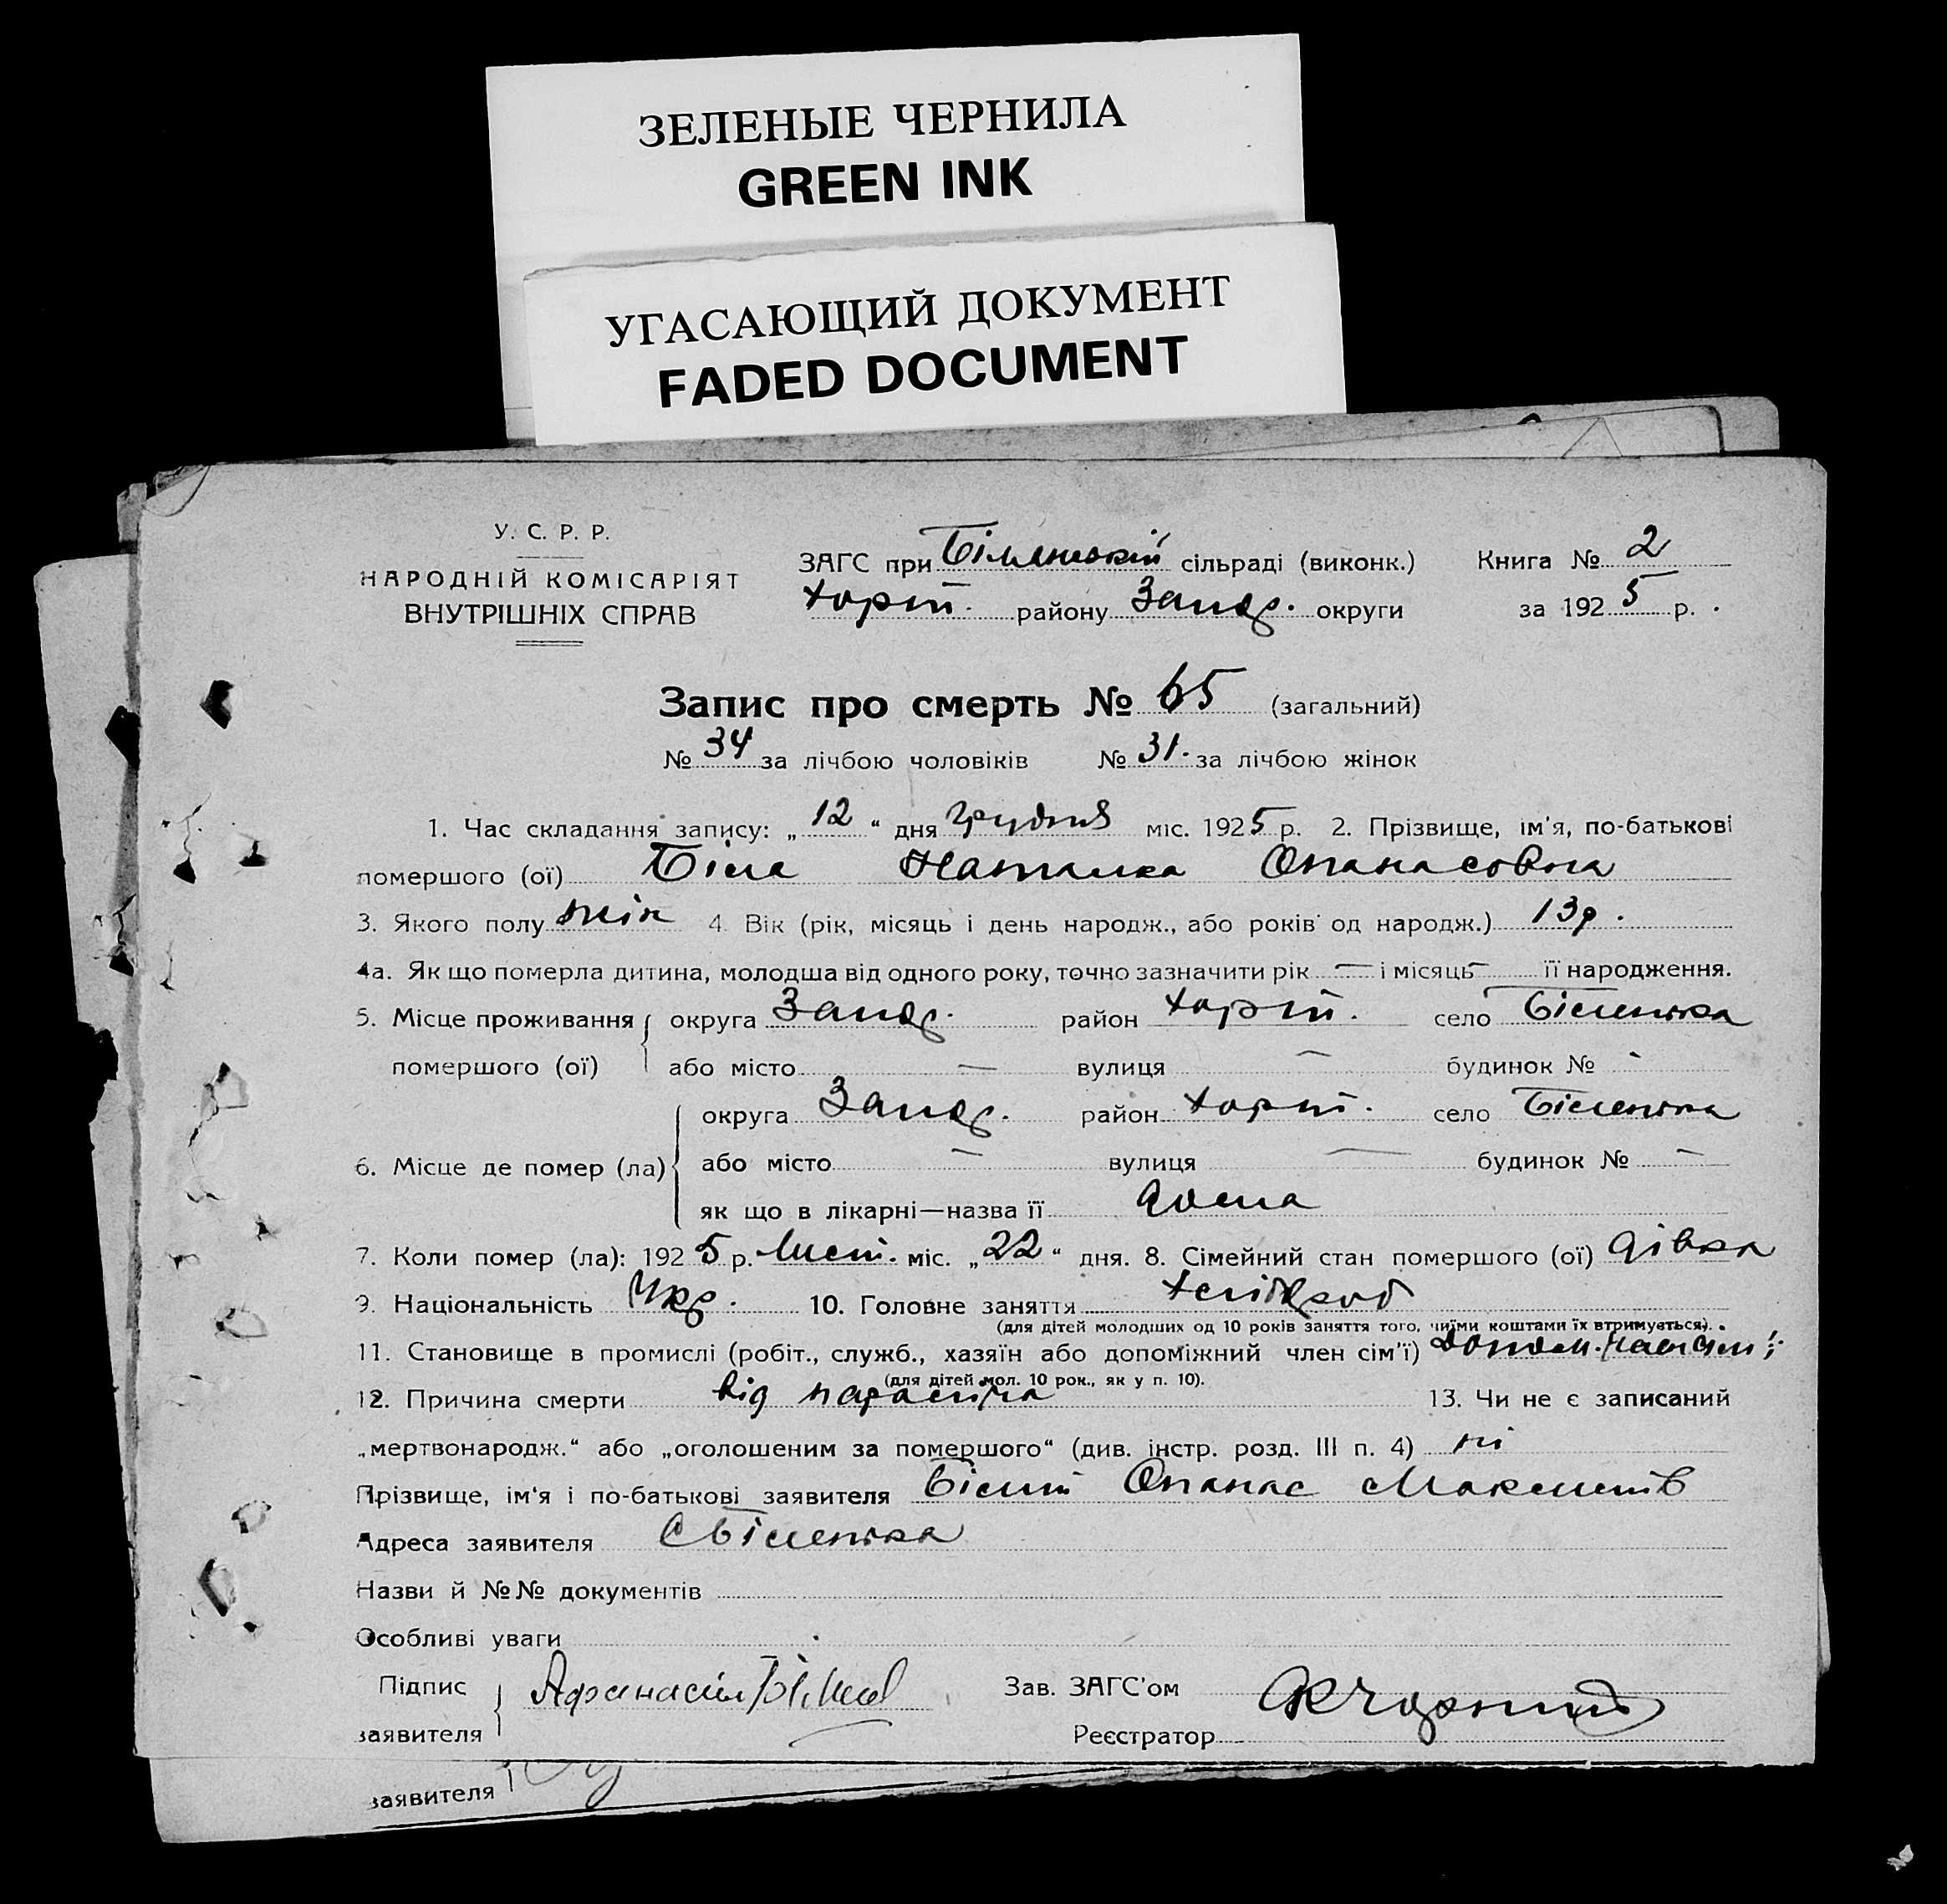 ЗЕЛЕНЫЕ ЧЕРНИЛА
GREEN INK
УГАСАЮЩИЙ ДОКУМЕНТ
FADED DOCUMENT
У. С. Р. Р.
НАРОДНІЙ КОМІСАРІЯТ
ВНУТРІШНІХ СПРАВ
ЗАГС при Біленській сільраді (виконк.) Книга № 2
Хорт. району Запор. округи за 1925 р.
Запис про смерть № 65 (загальний)
№ 34 за лічбою чоловіків № 31. за лічбою жінок
1. Час складання запису: „12“ дня грудня міс. 1925 р. 2. Прізвище, ім'я, по-батькові
помершого (ої) Біла Наталка Опанасовна
3. Якого полу жін 4. Вік (рік, місяць і день народж., або років од народж.) 13р.
4а. Як що померла дитина, молодша від одного року, точно зазначити рік — і місяць — її народження.
5. Місце проживання округа Запор. район Хорт. село Біленька
помершого (ої) або місто — вулиця — будинок № -
округа Запор. район Хорт. село Біленька
6. Місце де помер (ла) або місто — вулиця — будинок № —
як що в лікарні—назва її дома
7. Коли помер (ла): 1925 р. Лист. міс. „22“ дня. 8. Сімейний стан помершого (ої) дівка
9. Національність Укр. 10. Головне заняття хлібороб
(для дітей молодших од 10 років заняття того, чиїми коштами їх втримується).
11. Становище в промислі (робіт., служб., хазяїн або допоміжний член сім'ї) допом.
(для дітей мол. 10 рок., як у п. 10).
12. Причина смерти від 13. Чи не є записаний
„мертвонародж.“ або „оголошеним за помершого“ (див. інстр. розд. III п. 4) ні
Прізвище, ім'я і по-батькові заявителя Білий Опанас Максимів
Адреса заявителя С Біленька
Назви й №№ документів
Особливі уваги
Підпис Афанасий Зав. ЗАГС'ом
заявителя Реєстратор
заявителя